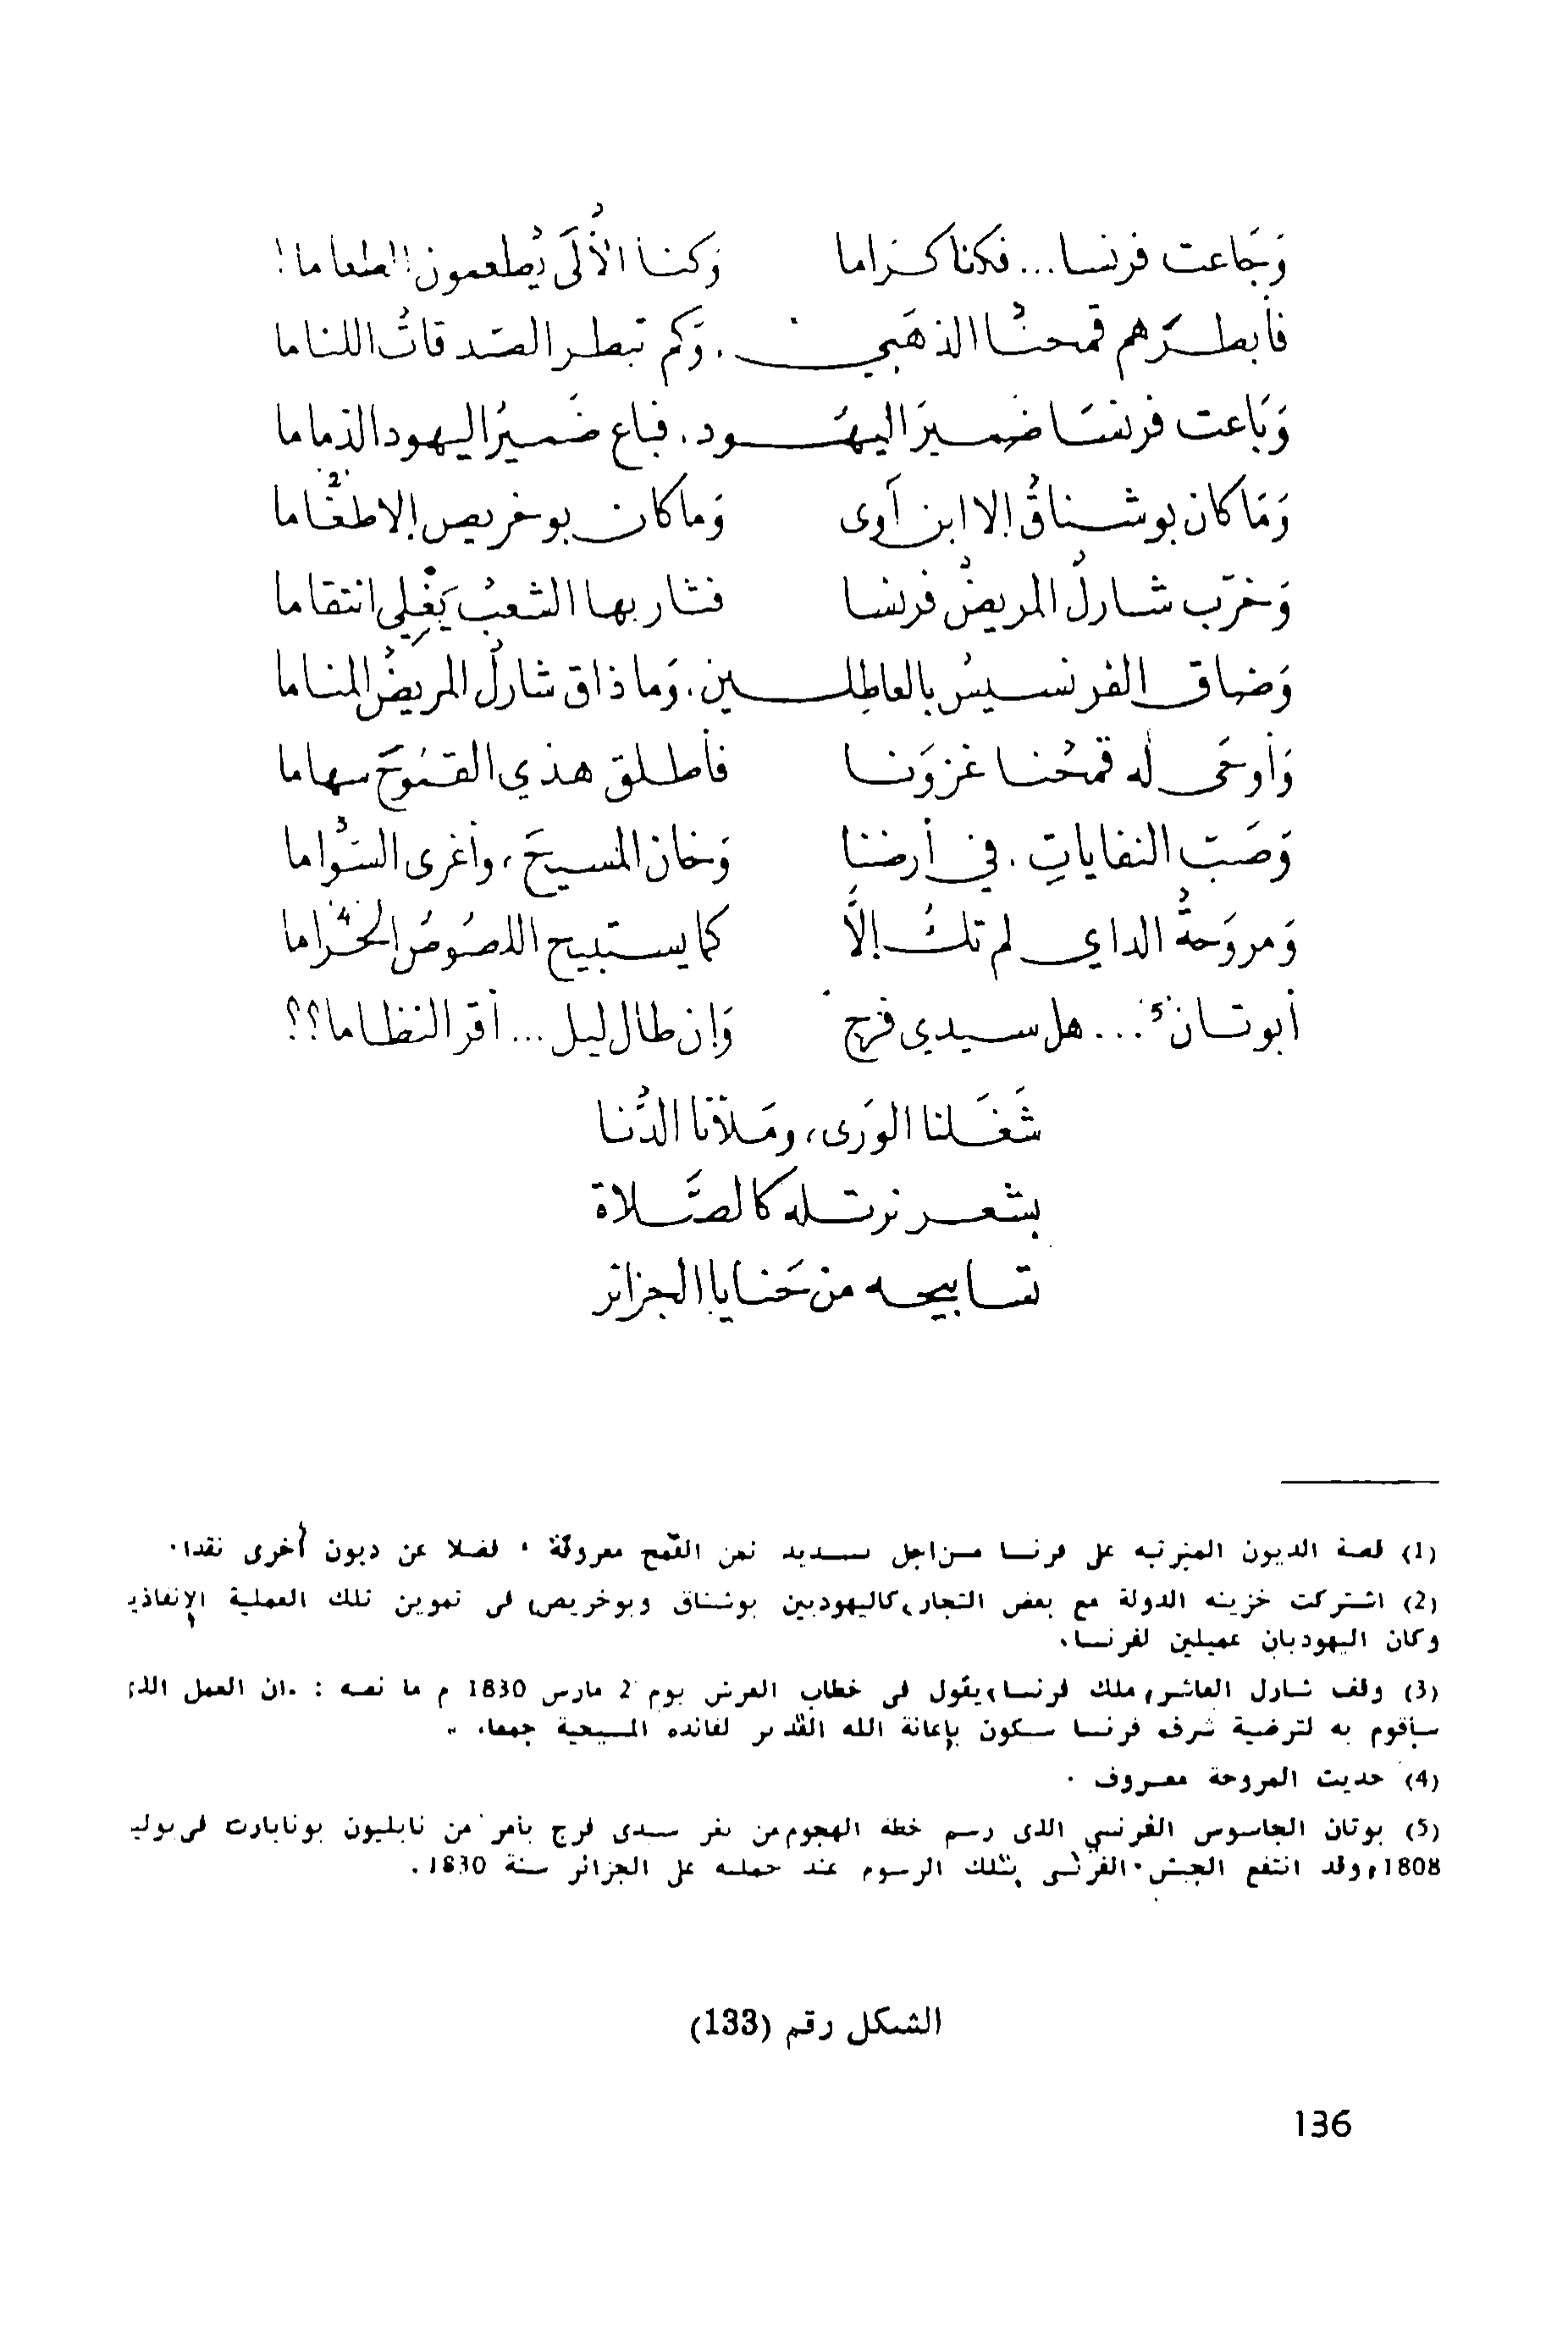 وَجَاعت فرنسا... فكنا كراما وَكنا الأُلَى يُطعمون الطعاما!
فأبطرَهم قمحنُا الذهَبي . وَكم تبطر الصَدقاتُ اللئاما
وَبَاعت فرنسَا ضميرَ اليهَود . فباع ضَميرُ اليهود الذماما
وَمَا كان بوشناقُ إلا ابن آوى وَما كان بوخريص إلا طغَاما 2
وَخرّب شارلُ المريضُ فرنسا فثار بها الشعبُ يَغْلي انتقاما
وَضاق الفرنسيسُ بالعاطِلين . وَما ذاق شارلُ المريضُ المناما
وَأوحَى له قمحُنا غزوَنا فأطلق هذي القمُوحَ سهاما
وَصَب النفاياتِ . في أرضنا وَخان المسيحَ ، وأغرى السَوَاما 3
وَمروَحةُ الداي لم تكُ إلاَّ كما يستبيح اللصُوصُ الحَراما 4
أبوتان 5 ... هل سيدي فرج وَإن طال ليل ... أقر النظاما؟؟
شَغَلنا الورَى، ومَلأنا الدُنا
بشعر نرتله كالصَّلاة
تسابيحه من حَنايا الجزائر
(1) قصة الديون المترتبه على فرنسا من اجل تسديد ثمن القمح معروفة ، فضلا عن ديون أخرى نقدا .
(2) اشتركت خزينه الدولة مع بعض التجار، كاليهوديين بوشناق وبوخريص، في تموين تلك العملية الإنقاذي
وكان اليهوديان عميلين لفرنسا.
(3) وقف شارل العاشر، ملك فرنسا، يقول في خطاب العرش يوم 2 مارس 1830 م ما نصه : «ان العمل الذي
سأقوم به لترضية شرف فرنسا سيكون بإعانة الله القدير لفائدة المسيحية جمعاء. »
(4) حديث المروحة معروف .
(5) بوتان الجاسوس الفرنسي الذي رسم خطة الهجوم من ثغر سيدي فرج بأمر من نابليون بونابارت في يوليـ
1808، وقد انتفع الجيش الفرنسي بتلك الرسوم عند حملته على الجزائر سنة 1830 .
الشكل رقم (133)
136